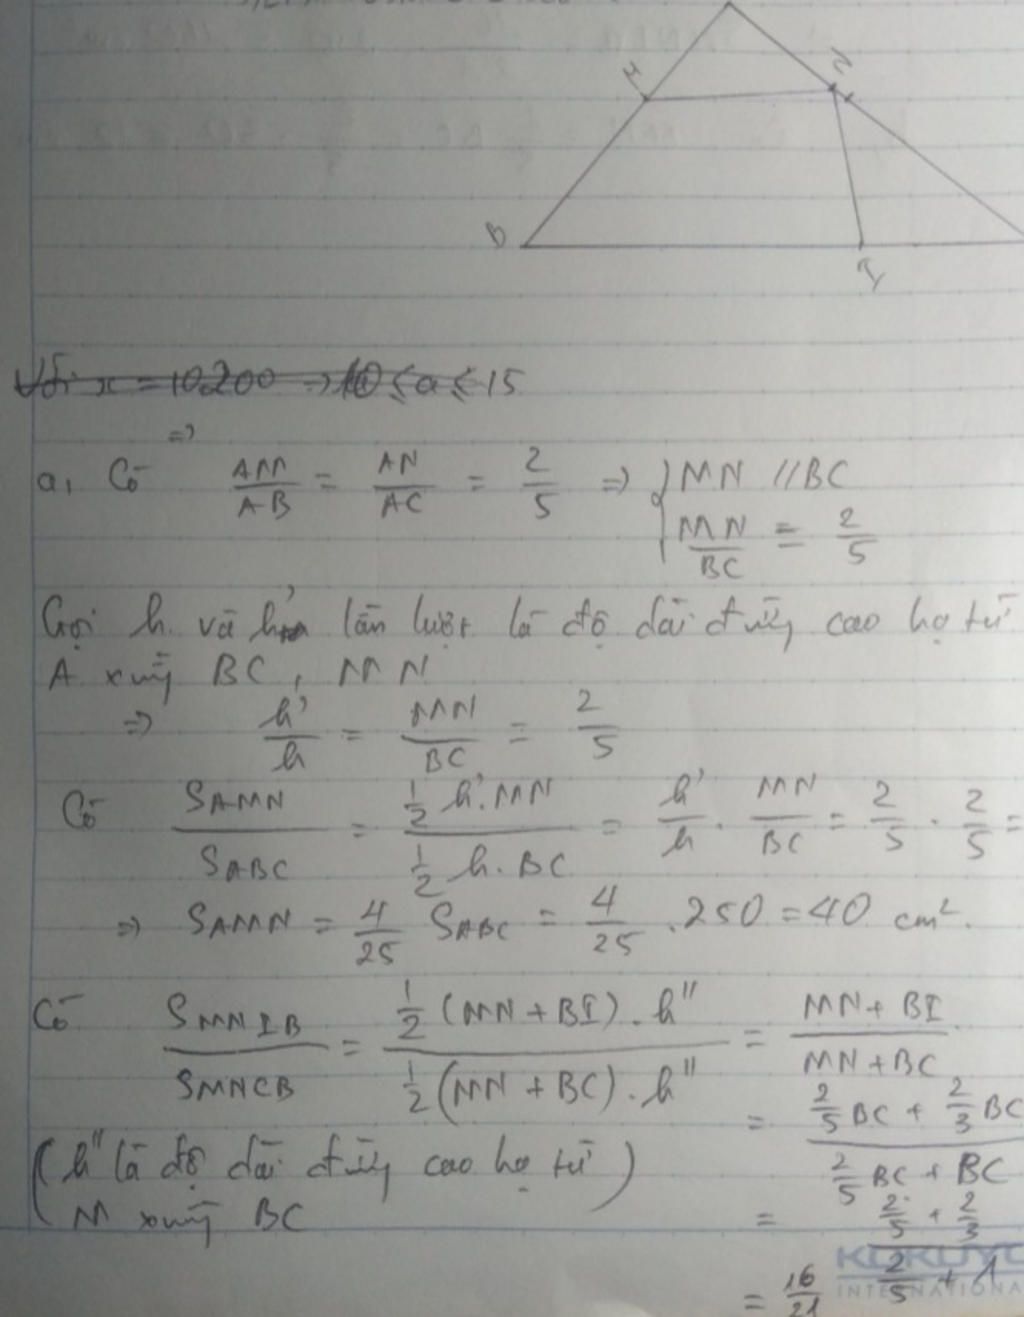 M
N
B
I
Với x = 10200 => 10 ≤ a ≤ 15
=>
a, Có AM/AB = AN/AC = 2/5 => { MN // BC
MN/BC = 2/5
Gọi h và h' lần lượt là độ dài đường cao hạ từ
A xuống BC, MN
=> h'/h = MN/BC = 2/5
Có SAMN/SABC = 1/2 h'.MN / 1/2 h.BC = h'/h . MN/BC = 2/5 . 2/5 =
=> SAMN = 4/25 SABC = 4/25 .250 = 40 cm².
Có SMNIB/SMNCB = 1/2 (MN + BI).h'' / 1/2 (MN + BC).h'' = MN + BI / MN + BC
= 2/5 BC + 2/3 BC / 2/5 BC + BC
(h'' là độ dài đường cao hạ từ
M xuống BC)
= 2/5 + 2/3 / 2/5 + 1
= 16/21
KOKUYO
INTERNATIONA